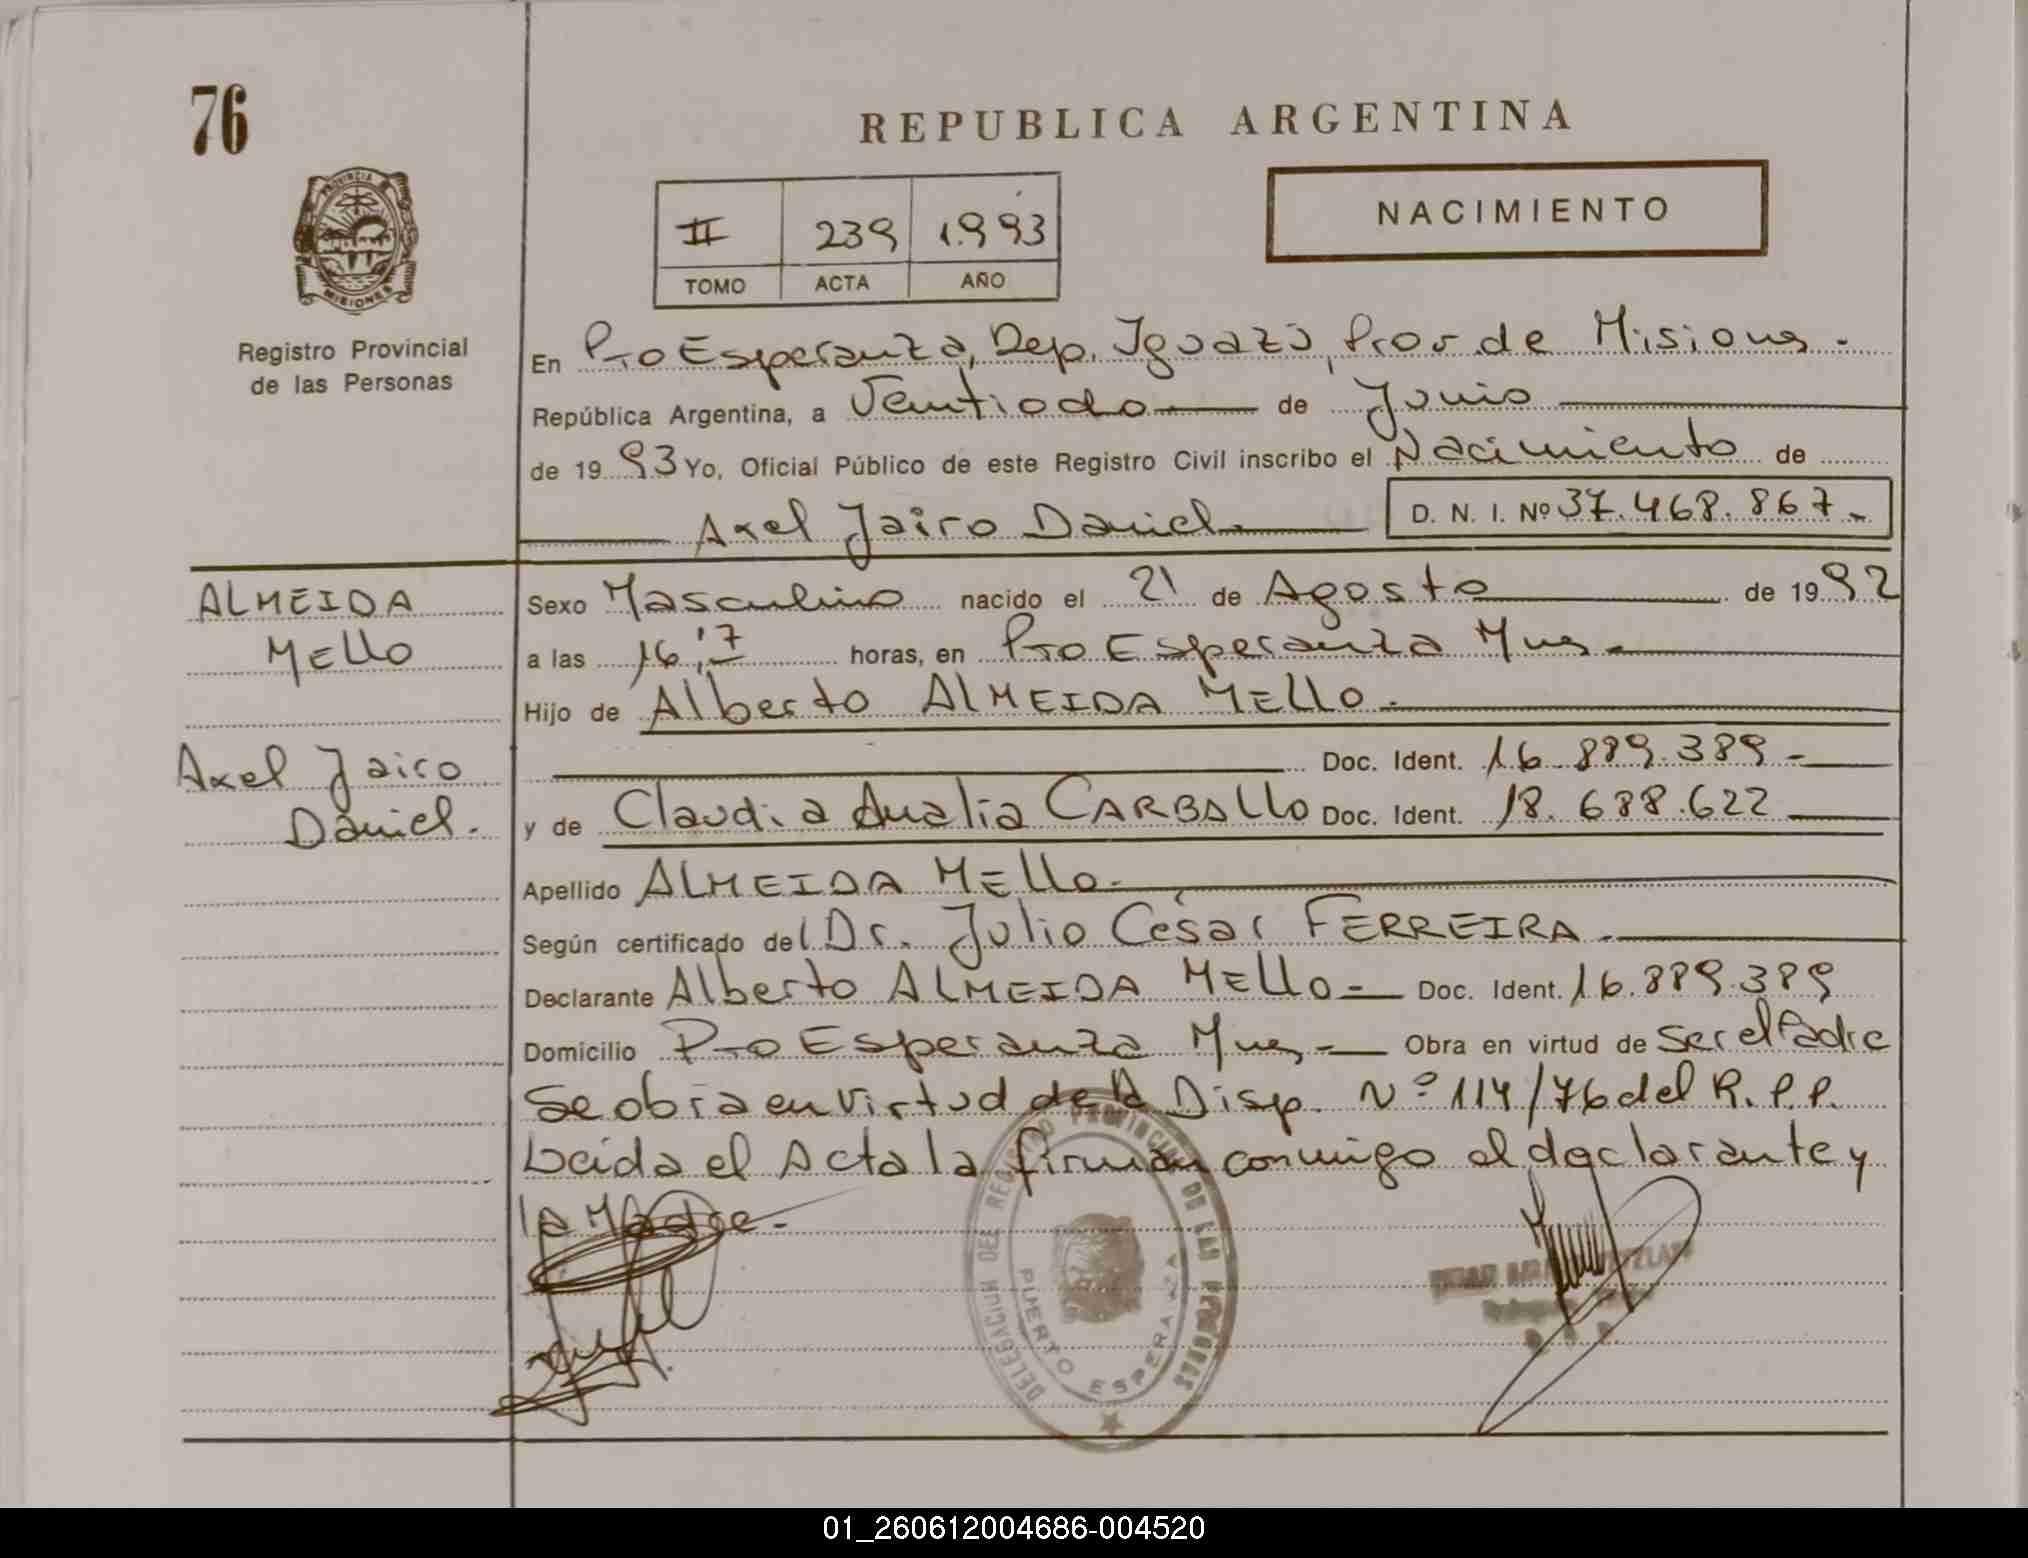 76
REPUBLICA ARGENTINA
PROVINCIA DE
MISIONES
II 239 1.993
TOMO ACTA AÑO
NACIMIENTO
Registro Provincial
de las Personas
En Pto Esperanza, Dep. Iguazú, Prov. de Misiones.
República Argentina, a Veintiodo de Junio
de 1993 Yo, Oficial Público de este Registro Civil inscribo el Nacimiento de
Axel Jairo Daniel D. N. I. Nº 37.468.867.-
ALMEIDA
MEllO
Axel Jairo
Daniel.
Sexo Masculino nacido el 21 de Agosto de 1992
a las 16,17 horas, en Pto Esperanza Mnes.
Hijo de Alberto ALMEIDA MEllO.
Doc. Ident. 16.889.389-
y de Claudia Analia CARBAllO Doc. Ident. 18.688.622
Apellido ALMEIDA MEllO.
Según certificado del Dr. Julio César FERREIRA.
Declarante Alberto ALMEIDA MEllO- Doc. Ident. 16.889.389
Domicilio Pto Esperanza Mnes- Obra en virtud de ser el Padre
Se obra en virtud de la Disp. Nº 114/76 del R.P.P.
Leida el Acta la firman conmigo el declarante y
la Madre.-
DELEGACION DEL REGISTRO PROVINCIAL DE LAS PERSONAS
PUERTO ESPERANZA
01_260612004686-004520